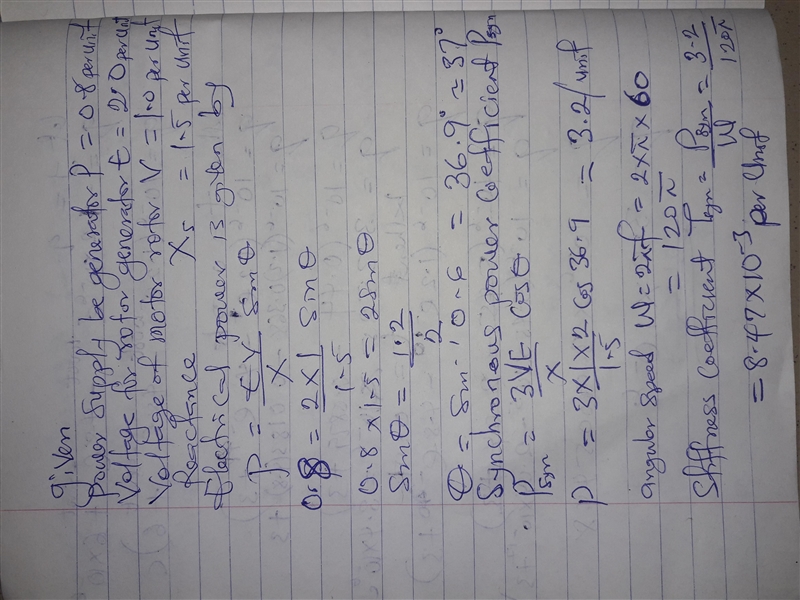 given
Power supply be generator P = 0.8 per unit
Voltage for rotor generator E = 2.0 per unit
Voltage of motor rotor V = 1.0 per unit
Reactance Xs = 1.5 per unit
Electrical power is given by
P = EV/X Sinθ
0.8 = 2×1/1.5 Sinθ
0.8 × 1.5 = 2Sinθ
Sinθ = 1.2/2
θ = Sin⁻¹ 0.6 = 36.9° ≈ 37°
Synchronous power coefficient Psyn
Psyn = 3VE/X Cosθ
P = 3×1×2/1.5 Cos 36.9 = 3.2/unit
angular speed W = 2πf = 2×π×60
= 120π
Stiffness coefficient Tsyn = Psyn/W = 3.2/120π
= 8.47×10⁻³ per unit